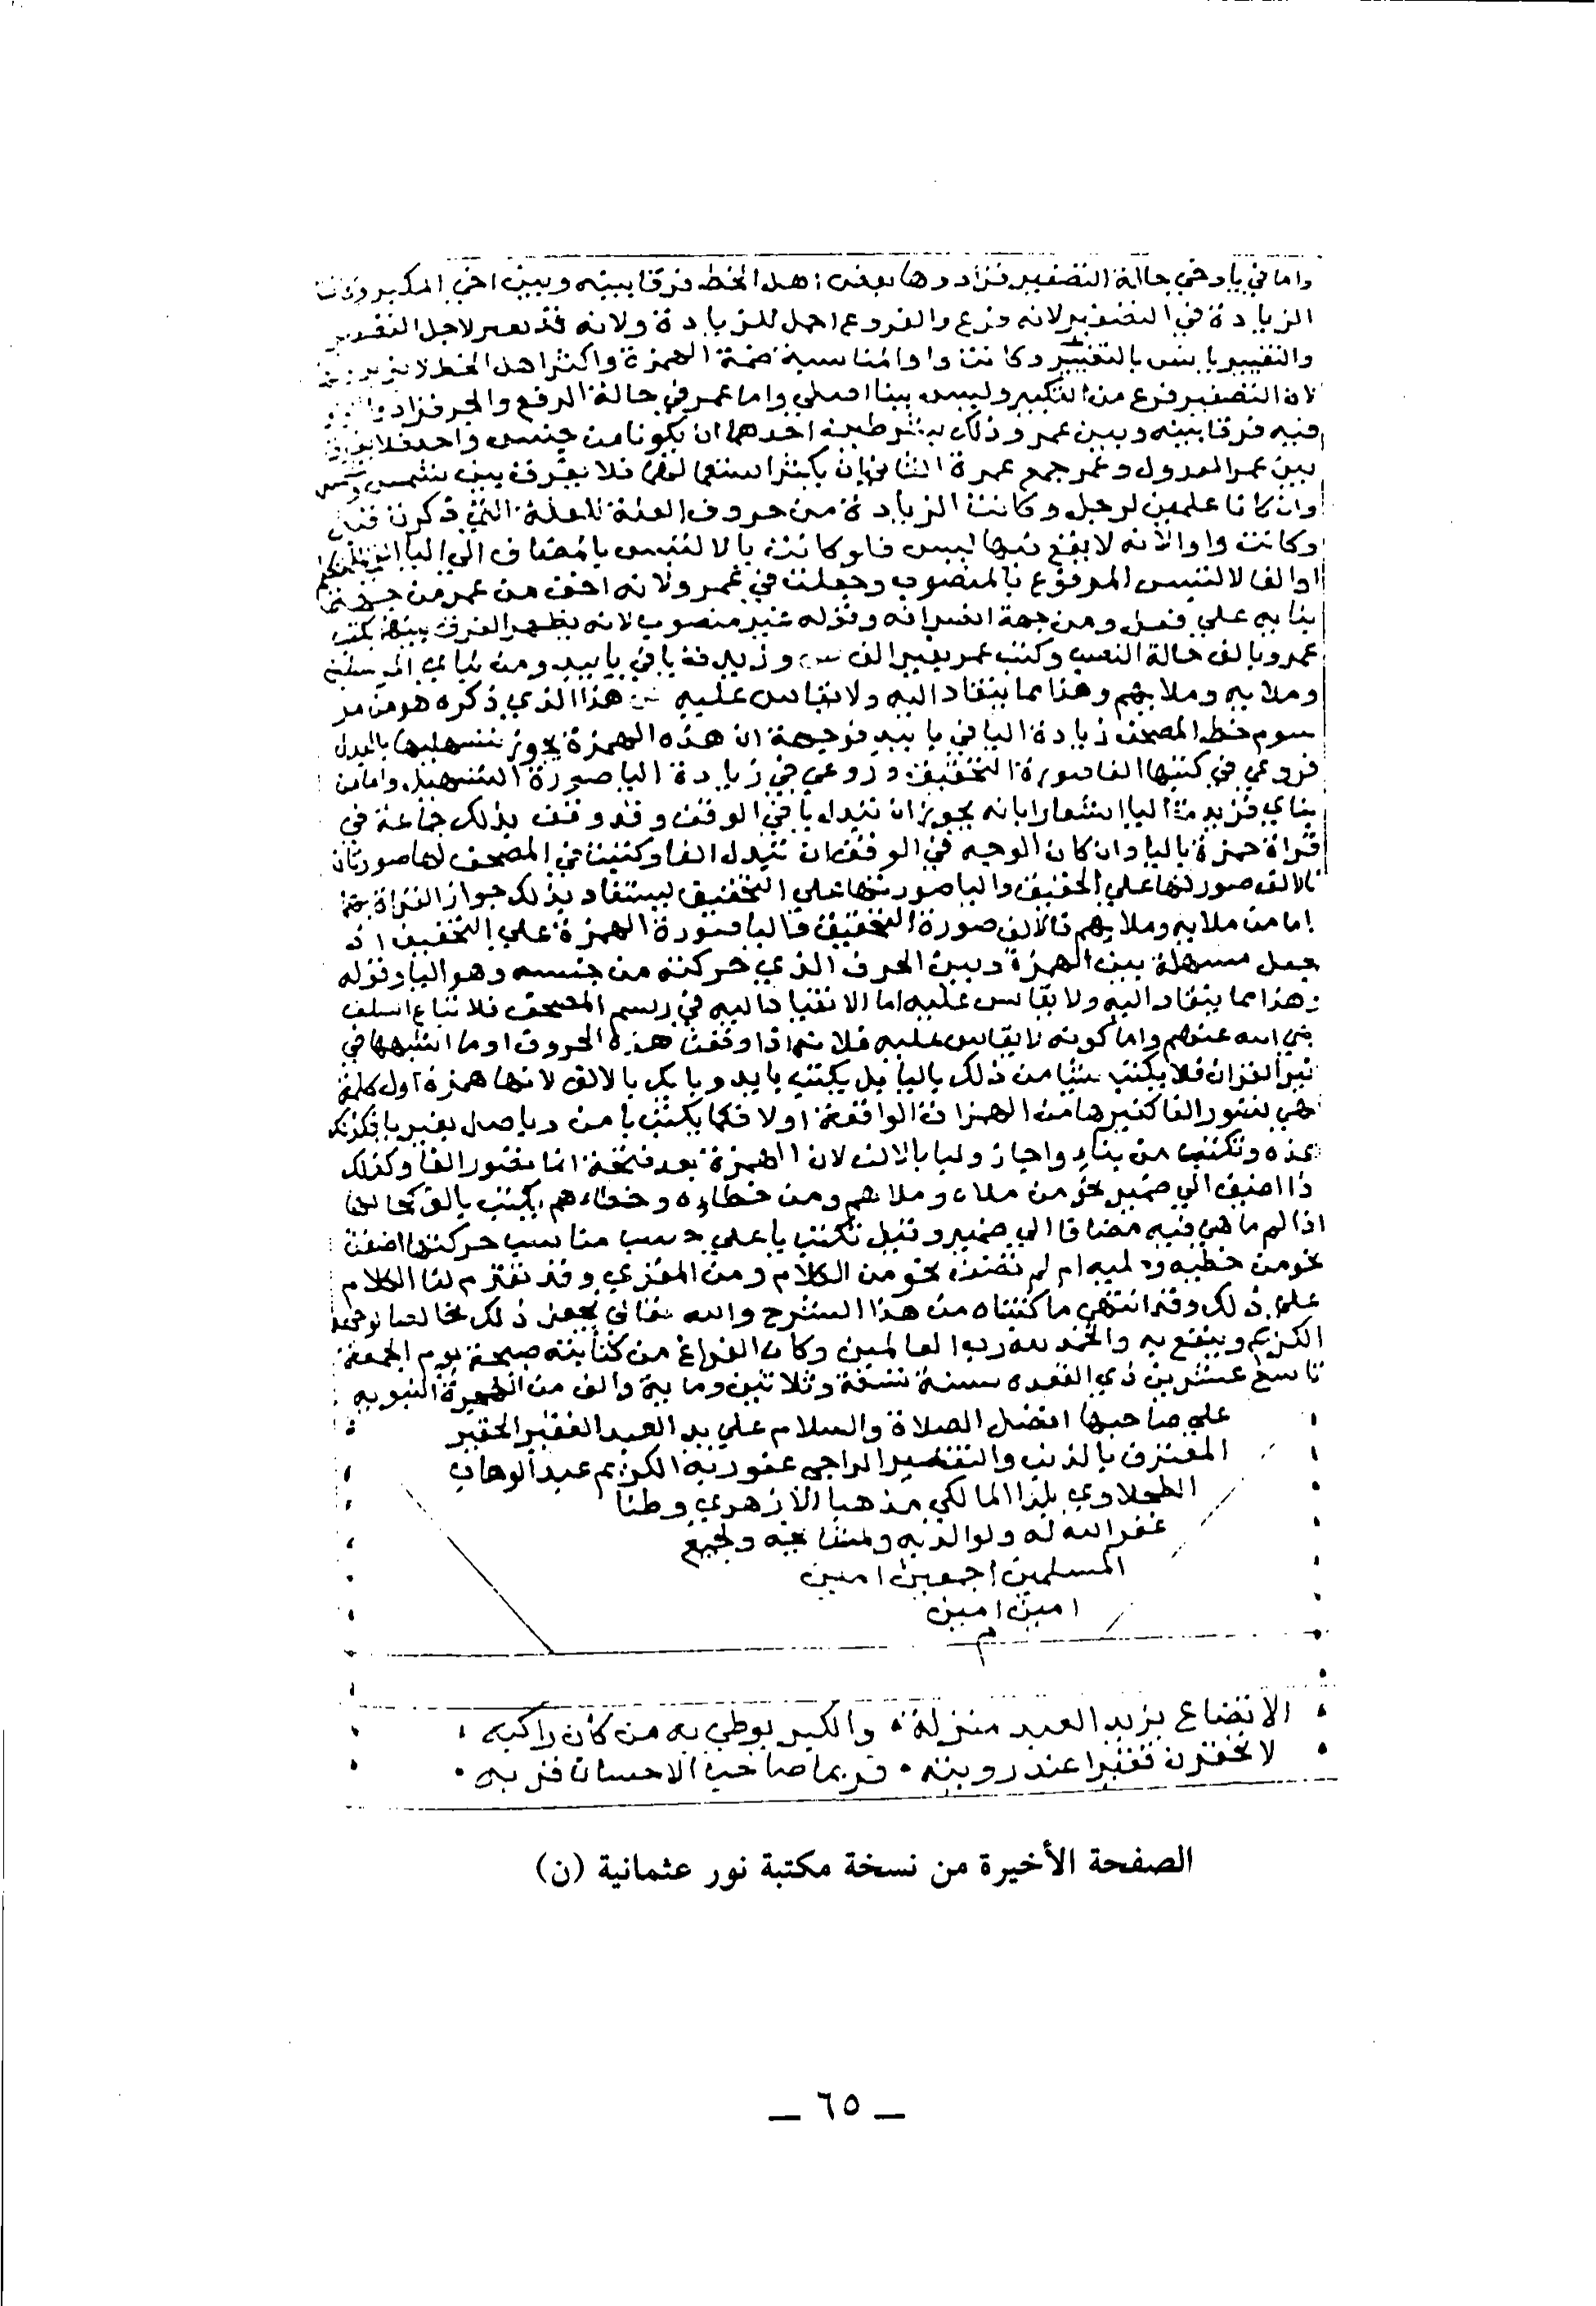 واما في يا وخي حالة التصغير فزادوها بعض اهل الخط فرقا بينه وبين اخي المكبر وكانت
الزيادة في التصغير لانه فرع والفروع احمل للزيادة ولانه قد تغير لاجل التصغير
والتغيير يانس بالتغيير وكانت واوا لمناسبة ضمة الهمزة واكثر اهل الخط لا يزيدونها
لان التصغير فرع من التكبير وليس ببنا اصلي واما عمر في حالة الرفع والجر فزادوا
فيه فرقا بينه وبين عمر وذلك بشرطين احدهما ان يكونا من جنس واحد فلا يفرق
بين عمر المعدول وعمر جمع عمرة الثاني ان يكثر استعمالهما فلا يفرق بين
وان كانا علمين لرجل وكانت الزيادة من حروف العلة للعلة التي ذكرت قبل
وكانت واوا لانه لا يقع فيها لبس فلو كانت يا لالتبس بالمضاف الى اليا
او الفا لالتبس المرفوع بالمنصوب وجعلت في عمرو لانه اخف من عمر من جهة
بنايه علي فعل ومن جهة انصرافه وقوله غير منصوب لانه يظهر الفرق بينهما بكتب
عمرو بالف حالة النصب وكتب عمر بغير الف وزيدت يا في باييد ومن نباي المرسلين
وملايه وملايهم وهذا مما ينقاد اليه ولا يقاس عليه هذا الذي ذكره هو من مر
سوم خط المصحف زيادة اليا في باييد فوجهه ان هذه الهمزة يجوز تسهيلها بالبدل
فروعي في كتبها الفا صورة التخفيف وروعي في زيادة اليا صورة التسهيل واما من
نباي فزيدت اليا اشعارا بانه يجوز ان تبدل يا في الوقف وقد وقف بذلك جماعة في
قراة حمزة باليا وان كان الوجه في الوقف ان تبدل الفا وكتبت في المصحف لها صورتان
فالالف صورتها على التحقيق واليا صورتها على التخفيف ليستفاد بذلك جواز القراة بهما
اما من ملايه وملايهم فالالف صورة التحقيق فاليا صورة الهمزة على التخفيف اذ
جعل مسهلة بين الهمزة وبين الحرف الذي حركته من جنسه وهو اليا وقوله
وهذا مما ينقاد اليه ولا يقاس عليه اما الانقياد اليه في رسم المصحف فلاتباع السلف
رضي الله عنهم واما كونه لا يقاس عليه فلانه اذا وقعت هذه الحروف او ما اشبهها في
غير القران فلا يكتب شيا من ذلك باليا بل يكتب بايد وباكل بالالف لانها همزة اول كلمة
فهي تصور الفا كغيرها من الهمزات الواقعة اولا فكما يكتب بامن وباصل بغير يا فكذلك
هذه وتكتب من بناء واحياز ولبا بالالف لان الهمزة بعد فتحة انما تصور الفا وكذلك
اذا اضيف الى ضمير نحو من ملاه وملاهم ومن خطاه وخطاهم يكتب بالف كحالها
اذا لم ما هي فيه مضافا الى ضمير وقيل تكتب يا على حسب مناسب حركتها اضفت
نحو من خطيه ام لم تضف نحو من الكلام ومن المقري وقد تقدم لنا الكلام
على ذلك وقد انتهى ما كتبناه من هذا الشرح والله تعالى يجعل ذلك خالصا لوجهه
الكريم وينفع به والحمد لله رب العالمين وكان الفراغ من كتابته صبيحة يوم الجمعة
تاسع عشرين ذي القعده سنة تسعة وثلاثين وماية والف من الهجرة النبويه
علي صاحبها افضل الصلاة والسلام علي يد العبد الفقير الحقير
المعترف بالذنب والتقصير الراجي عفو ربه الكريم عبد الوهاب
الطحلاوي بلدا المالكي مذهبا الازهري وطنا
غفر الله له ولوالديه ولمشايخه ولجميع
المسلمين اجمعين امين
امين امين
م
الاتضاع يزيد العبد منزلة والكبر يوطي به من كان راكبه
لا تحقرن فقيرا عند رويته فربما صاحب الاحسان قربه
الصفحة الأخيرة من نسخة مكتبة نور عثمانية (ن)
ـ ٦٥ ـ